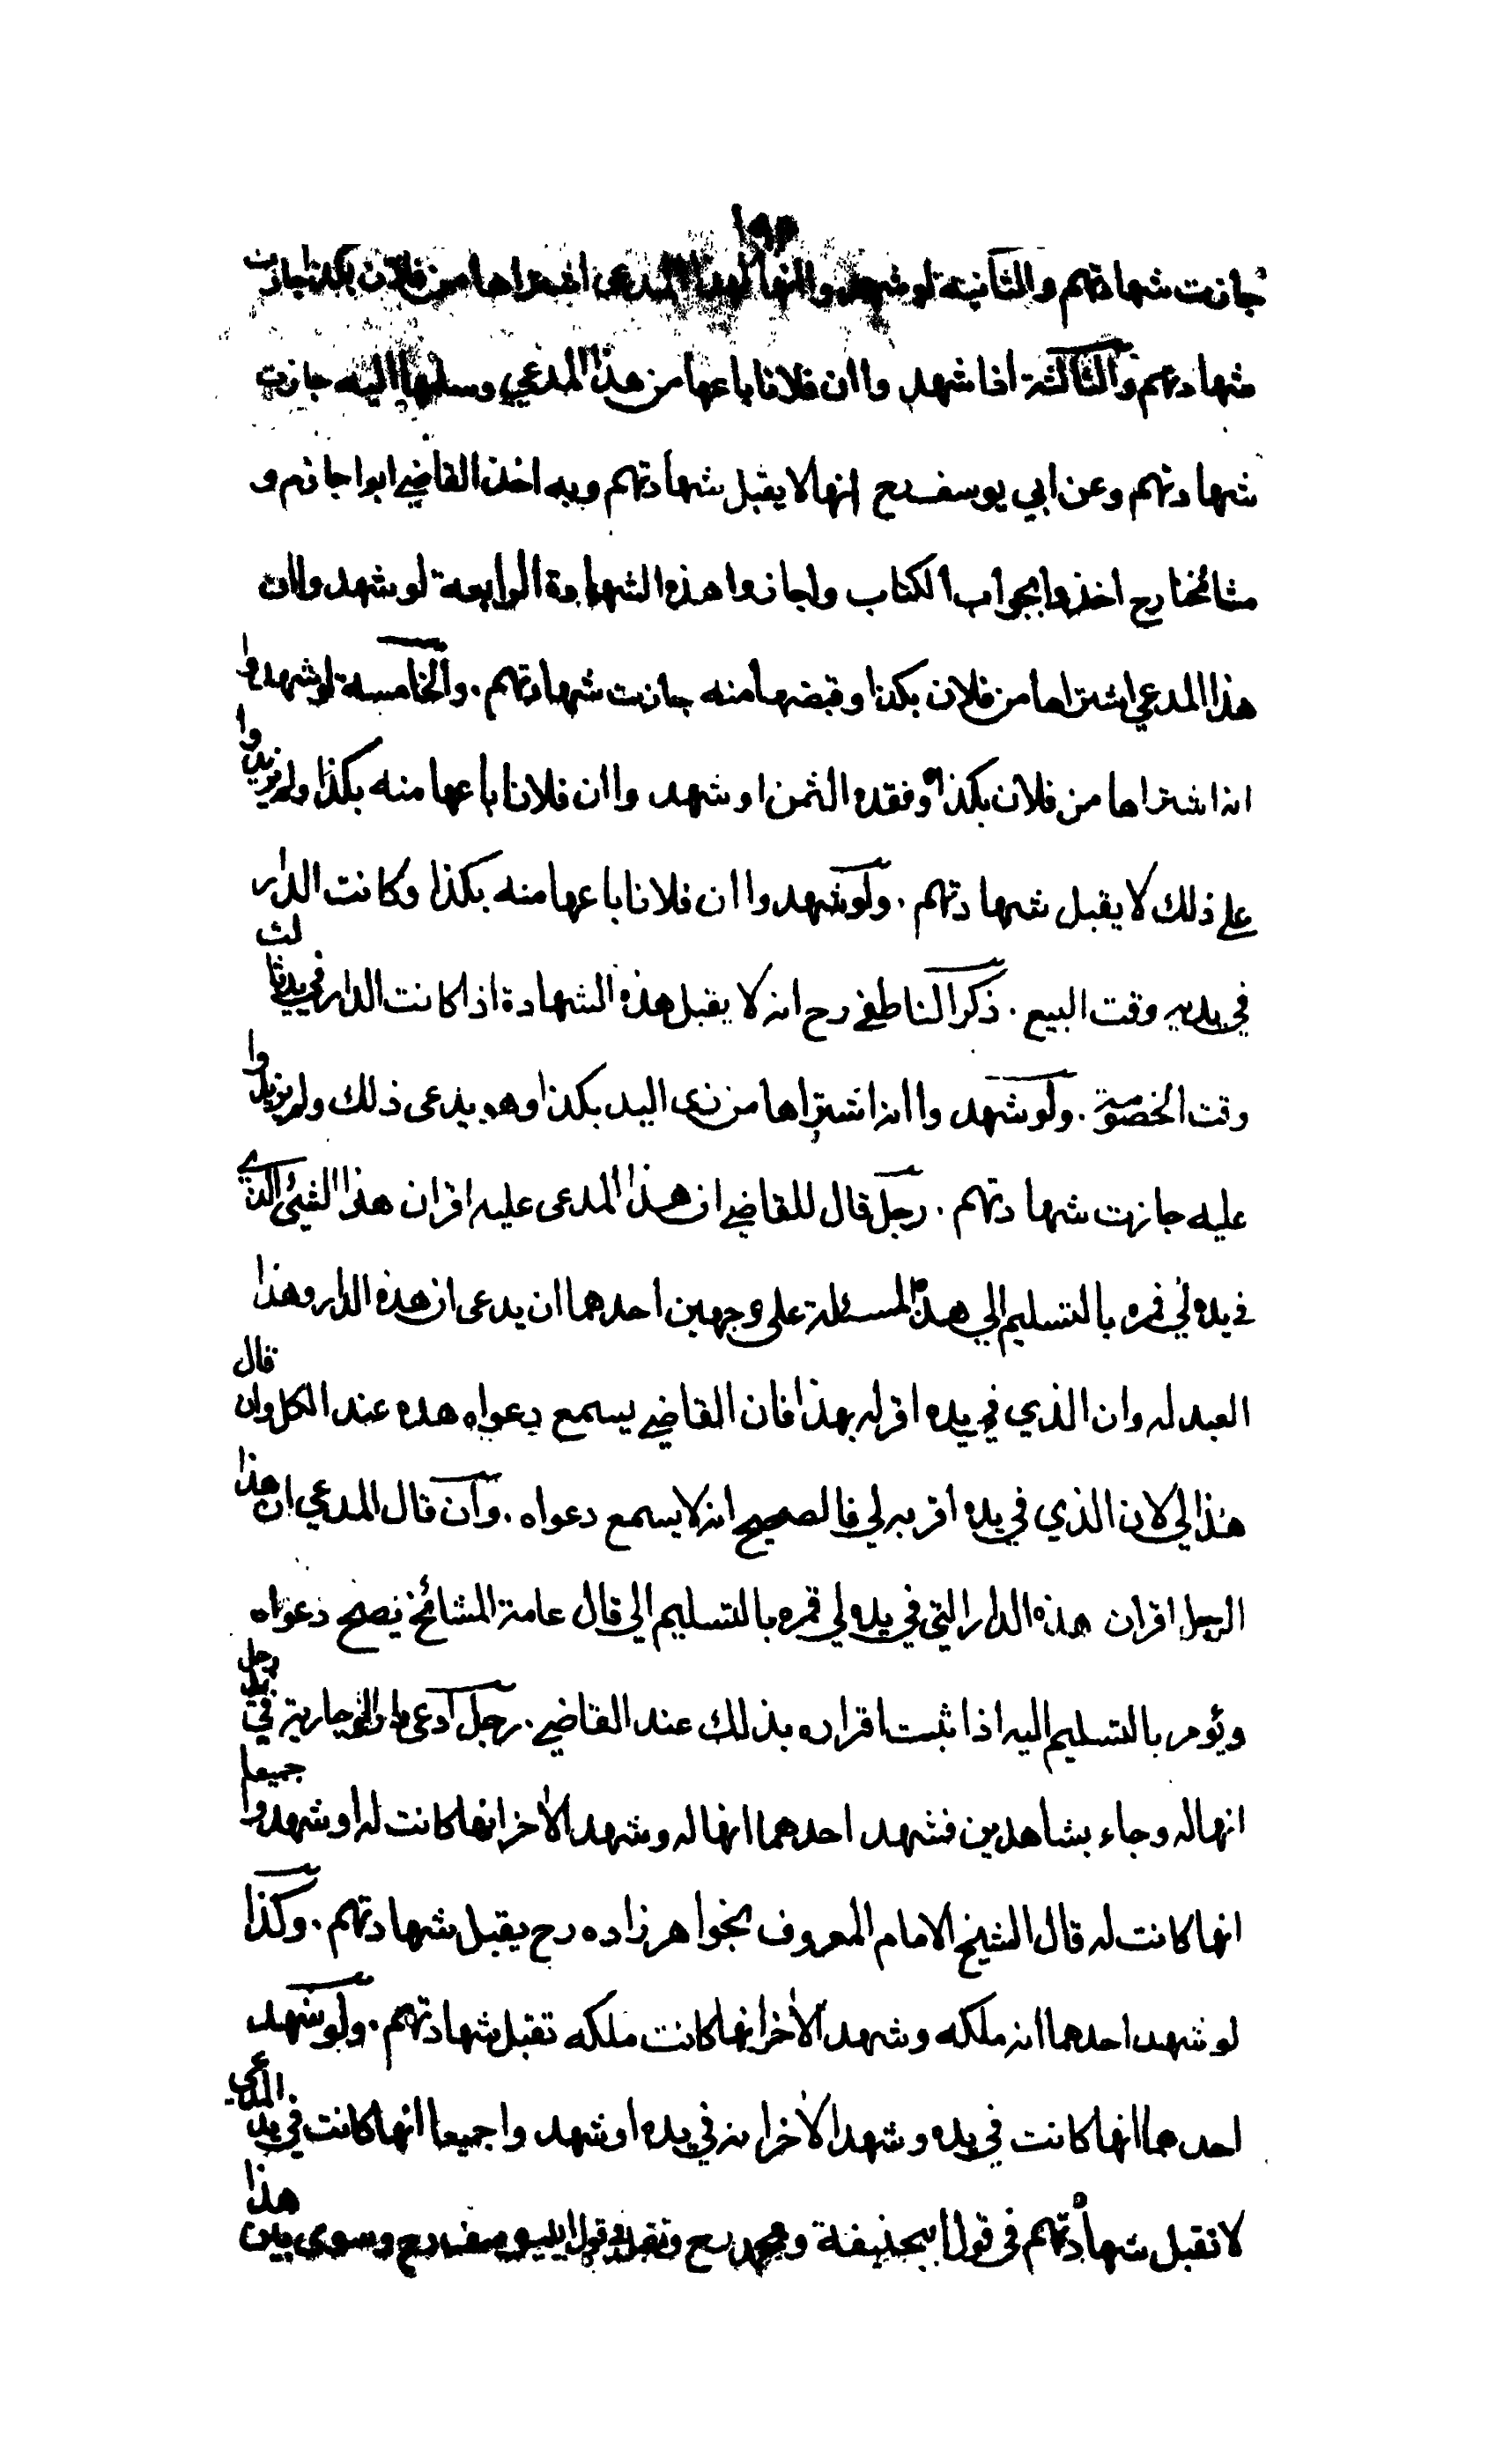 ١٩٣
جازت شهادتهم والثانية لو شهدوا انها لهذا المدعى اشتراها من فلان بكذا جازت
شهادتهم والثالثة اذا شهدوا ان فلانا باعها من هذا المدعي وسلمها اليه جازت
شهادتهم وعن ابي يوسف رح انها لا يقبل شهادتهم وبه اخذ القاضي ابوا جازم و
مشائخنا رح اخذوا بجواب الكتاب واجازوا هذه الشهادة الرابعة لو شهدوا ان
هذا المدعي اشتراها من فلان بكذا وقبضها منه جازت شهادتهم . والخامسة لو شهدوا
انه اشتراها من فلان بكذا وفقده الثمن او شهدوا ان فلانا باعها منه بكذا ولم يزيدوا
على ذلك لا يقبل شهادتهم . ولو شهدوا ان فلانا باعها منه بكذا وكانت الدار
في يديه وقت البيع . ذكر الناطفي رح انه لا يقبل هذه الشهادة اذا كانت الدار في يد ثالث
وقت الخصومة . ولو شهدوا انه اشتراها من ذي اليد بكذا وهو يدعى ذلك ولم يزيدوا
عليه جازت شهادتهم . رجل قال للقاضي ان هذا المدعى عليه اقر ان هذا الشيئ الذي
في يده لي فمره بالتسليم الي هذه المسئلة على وجهين احدهما ان يدعى ان هذه الدار وهذا
العبد له وان الذي في يده اقر له بهذا فان القاضي يسمع دعواه هذه عند الكل وان قال
هذا لي لان الذي في يده اقر به لي فالصحيح انه لا يسمع دعواه . وان قال المدعي ان هذا
الرجل اقر ان هذه الدار التي في يده لي فمره بالتسليم الي قال عامة المشائخ يصح دعواه
ويؤمر بالتسليم اليه اذا ثبت اقراره بذلك عند القاضي . رجل ادعى دارا او جارية في يد رجل
انها له وجاء بشاهدين فشهد احدهما انها له وشهد الاخر انها كانت له او شهدوا جميعا
انها كانت له قال الشيخ الامام المعروف بخواهرزاده رح يقبل شهادتهم . وكذا
لو شهد احدهما انه ملكه وشهد الاخر انها كانت ملكه تقبل شهادتهم . ولو شهد
احدهما انها كانت في يده وشهد الاخر انه في يده او شهدوا جميعا انها كانت في يد المدعي
لا تقبل شهادتهم في قول ابيحنيفة ومحمد رح وتقبل في قول ابييوسف رح وسوى بين هذا